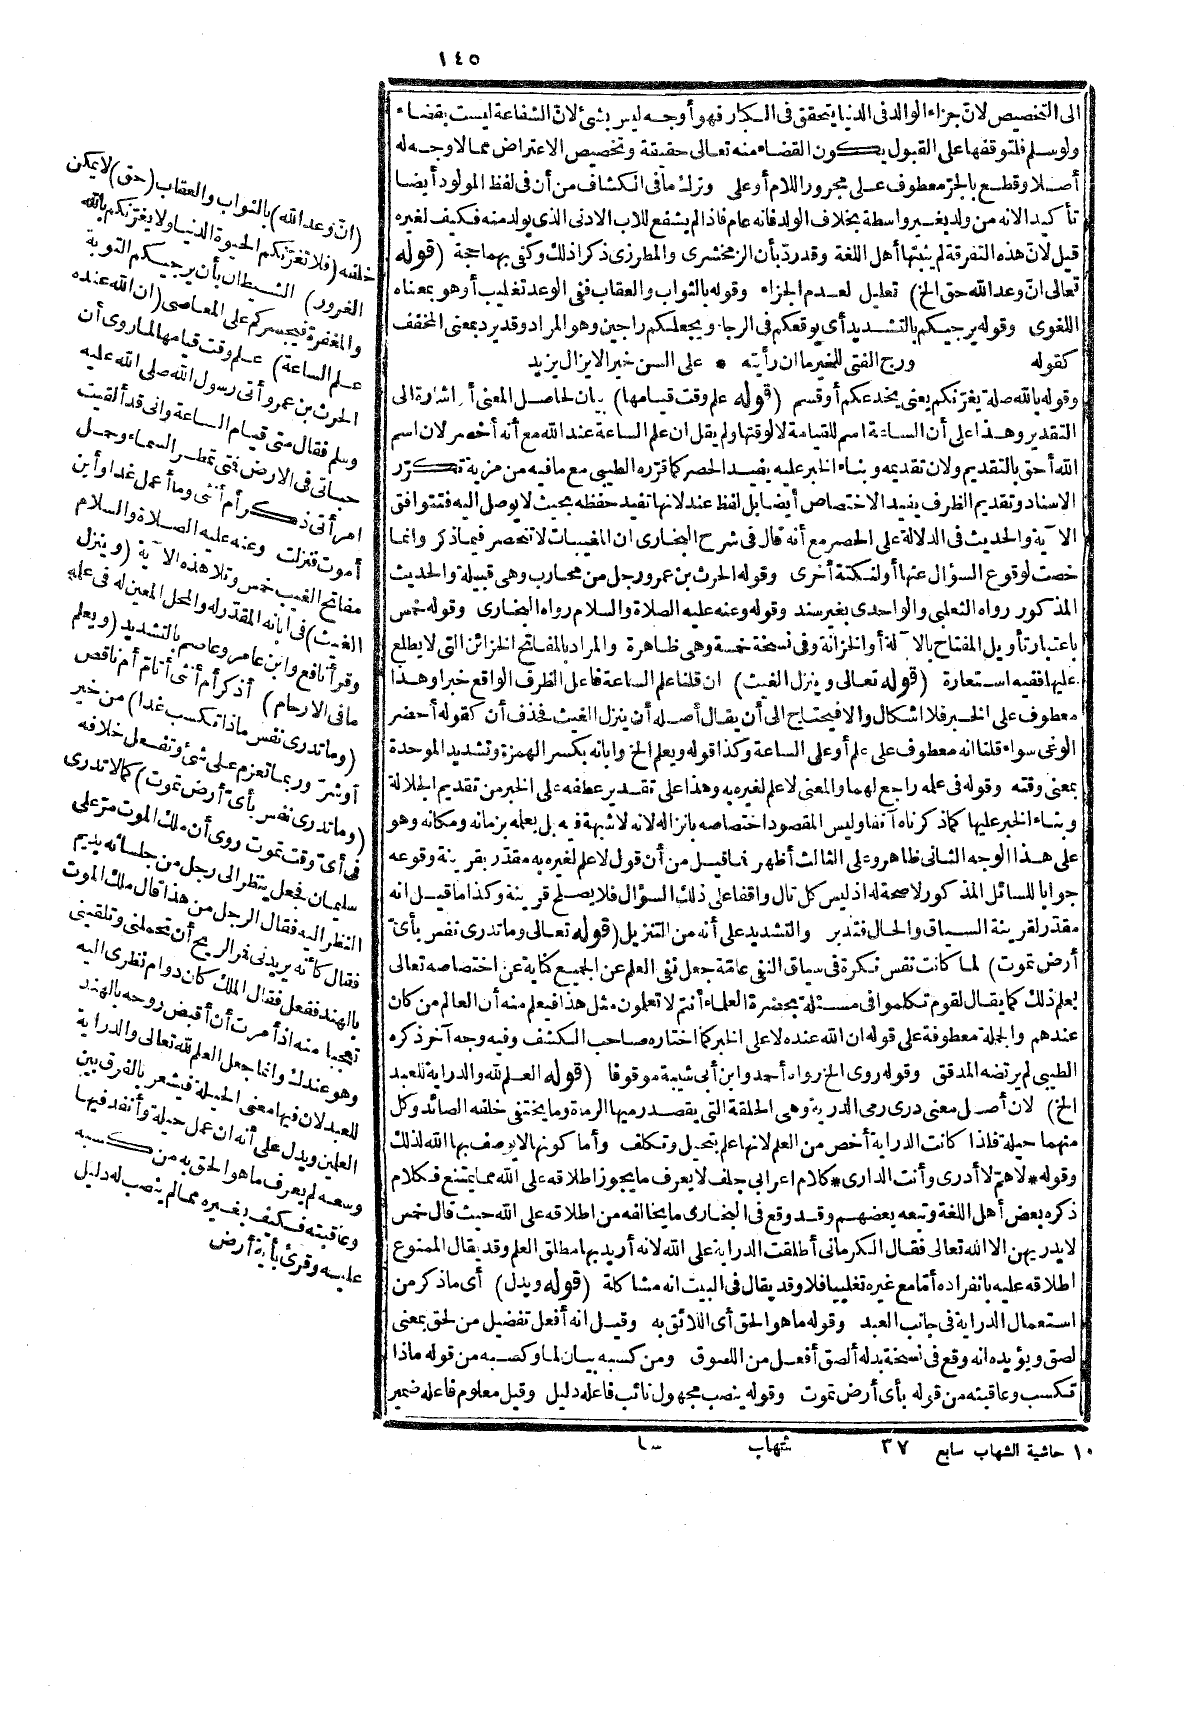 ١٤٥
الى التخصيص لان جزاء الوالد فى الدنيا يتحقق فى الكبار فهو أوجه ليس بشئ لان الشفاعة ليست بقضاء
ولو سلم فلتوقفها على القبول يكون القضاء منه تعالى حقيقة وتخصيص الاعتراض مما لا وجه له
أصلا وقطع بالجر معطوف على مجرور اللام أو على وترك ما فى الكشاف من أن فى لفظ المولود أيضا
تأكيد الانه من ولد بغير واسطة بخلاف الولد فانه عام فاذا لم يشفع للاب الادنى الذى يولد منه فكيف لغيره
قيل لان هذه التفرقة لم يثبتها أهل اللغة وقد رد بأن الزمخشرى والمطرزى ذكرا ذلك وكفى بهما حجة (قوله
تعالى ان وعد الله حق الخ) تعليل لعدم الجزاء وقوله بالثواب والعقاب ففى الوعد تغليب أو هو بمعناه
اللغوى وقوله يرجيكم بالتشديد أى يوقعكم فى الرجاء ويجعلكم راجين وهو المراد وقد يرد بمعنى المخفف
كقوله ورج الفتى للخير ما ان رأيته * على السن خيرا لا يزال يزيد
وقوله بالله صلة يغرنكم يعنى يخدعكم أو قسم (قوله علم وقت قيامها) بيان لحاصل المعنى أو اشارة الى
التقدير وهذا على أن الساعة اسم للقيامة لا لوقتها ولم يقل ان علم الساعة عند الله مع أنه أخصر لان اسم
الله أحق بالتقديم ولان تقديمه وبناء الخبر عليه يفيد الحصر كما قرره الطيبى مع ما فيه من مزية تكرر
الاسناد وتقديم الظرف يفيد الاختصاص أيضا بل لفظ عند لانها تفيد حفظه بحيث لا يوصل اليه فتتوافق
الآية والحديث فى الدلالة على الحصر مع أنه قال فى شرح البخارى ان المغيبات لا تنحصر فيما ذكر وانما
خصت لوقوع السؤال عنها أو لنكتة أخرى وقوله الحرث بن عمرو رجل من محارب وهى قبيلة والحديث
المذكور رواه الثعلبى والواحدى بغير سند وقوله وعنه عليه الصلاة والسلام رواه البخارى وقوله خمس
باعتبار تأويل المفتاح بالآلة أو الخزانة وفى نسخة خمسة وهى ظاهرة والمراد بالمفاتح الخزائن التى لا يطلع
عليها ففيه استعارة (قوله تعالى وينزل الغيث) ان قلنا علم الساعة فاعل الظرف الواقع خبرا وهذا
معطوف على الخبر فلا اشكال والا فيحتاج الى أن يقال أصله أن ينزل الغيث فحذف أن كقوله أحضر
الوغى سواء قلنا انه معطوف على علم أو على الساعة وكذا قوله ويعلم الخ وابانه بكسر الهمزة وتشديد الموحدة
بمعنى وقته وقوله فى علمه راجع لهما والمعنى لا علم لغيره به وهذا على تقدير عطفه على الخبر من تقديم الجلالة
وبناء الخبر عليها كما ذكرناه آنفا وليس المقصود اختصاصه بانزاله لانه لا شبهة فيه بل بعلمه بزمانه ومكانه وهو
على هذا الوجه الثانى ظاهر وعلى الثالث أظهر فما قيل من أن قول لا علم لغيره به مقدر بقرينة وقوعه
جوابا للسائل المذكور لا صحة له اذ ليس كل تال واقفا على ذلك السؤال فلا يصلح قرينة وكذا ما قيل انه
مقدر لقرينة السياق والحال فتدبر والتشديد على أنه من التنزيل (قوله تعالى وما تدرى نفس بأى
أرض تموت) لما كانت نفس نكرة فى سياق النفى عامة جعل نفى العلم عن الجميع كناية عن اختصاصه تعالى
بعلم ذلك كما يقال لقوم تكلموا فى مسئلة بحضرة العلماء أنتم لا تعلمون مثل هذا فيعلم منه أن العالم من كان
عندهم والجملة معطوفة على قوله ان الله عنده لا على الخبر كما اختاره صاحب الكشف وفيه وجه آخر ذكره
الطيبى لم يرتضه المدقق وقوله روى الخ رواه أحمد وابن أبى شيبة موقوفا (قوله العلم لله والدراية للعبد
الخ) لان أصل معنى درى رمى الدرية وهى الحلقة التى يقصد رميها الرماة وما يختفى خلفه الصائد وكل
منهما حيلة فلذا كانت الدراية أخص من العلم لانها علم بتحيل وتكلف وأما كونها لا يوصف بها الله لذلك
وقوله * لاهم لا أدرى وأنت الدارى * كلام اعرابى جلف لا يعرف ما يجوز اطلاقه على الله مما يمتنع فكلام
ذكره بعض أهل اللغة وتبعه بعضهم وقد وقع فى البخارى ما يخالفه من اطلاقه على الله حيث قال خمس
لا يدريهن الا الله تعالى فقال الكرمانى أطلقت الدراية على الله لانه أريد بها مطلق العلم وقد يقال الممنوع
اطلاقه عليه بانفراده أما مع غيره تغليبا فلا وقد يقال فى البيت انه مشاكلة (قوله ويدل) أى ما ذكر من
استعمال الدراية فى جانب العبد وقوله ما هو الحق أى اللائق به وقيل انه أفعل تفضيل من لحق بمعنى
لصق ويؤيده انه وقع فى نسخة بدله ألصق أفعل من اللصوق ومن كسبه بيان لما وكسبه من قوله ماذا
تكسب وعاقبته من قوله بأى أرض تموت وقوله ينصب مجهول نائب فاعله دليل وقيل معلوم فاعله ضمير
١٠ حاشية الشهاب سابع ٣٧ شهاب
(ان وعد الله) بالثواب والعقاب (حق) لا يمكن
خلفه (فلا تغرنكم الحيوة الدنيا ولا يغرنكم بالله
الغرور) الشيطان بأن يرجيكم التوبة
والمغفرة فيجسركم على المعاصى (ان الله عنده
علم الساعة) علم وقت قيامها لما روى أن
الحرث بن عمرو أتى رسول الله صلى الله عليه
وسلم فقال متى قيام الساعة وانى قد ألقيت
حباتى فى الارض فمتى تمطر السماء وحمل
امرأتى ذكر أم أنثى وما أعمل غدا وأين
أموت فنزلت وعنه عليه الصلاة والسلام
مفاتح الغيب خمس وتلا هذه الآية (وينزل
الغيث) فى ابانه المقدر له والمحل المعين له فى علمه
وقرأ نافع وابن عامر وعاصم بالتشديد (ويعلم
ما فى الارحام) أذكر أم أنثى أتام أم ناقص
(وما تدرى نفس ماذا تكسب غدا) من خير
أو شر وربما تعزم على شئ وتفعل خلافه
(وما تدرى نفس بأى أرض تموت) كما لا تدرى
فى أى وقت تموت روى أن ملك الموت مر على
سليمان فجعل ينظر الى رجل من جلسائه يديم
النظر اليه فقال الرجل من هذا قال ملك الموت
فقال كأنه يريدنى فمر الريح أن تحملنى وتلقينى
بالهند ففعل فقال الملك كان دوام نظرى اليه
تعجبا منه اذ أمرت أن أقبض روحه بالهند
وهو عندك وانما جعل العلم لله تعالى والدراية
للعبد لان فيها معنى الحيلة فيشعر بالفرق بين
العلمين ويدل على أنه ان عمل حيلة وأنفد فيها
وسعه لم يعرف ما هو الحق به من كسبه
وعاقبته فكيف بغيره مما لم ينصب له دليل
عليه وقرئ بأية أرض